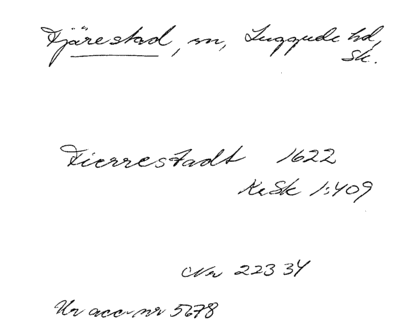 Fjärestad, sn, Luggude hd,
Sk.
Fierrestadt 1622
KrSk 1:409
Nr 22334
Ur acc-nr 5678